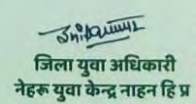 जिला युवा अधिकारी
नेहरू युवा केन्द्र नाहन हि प्र